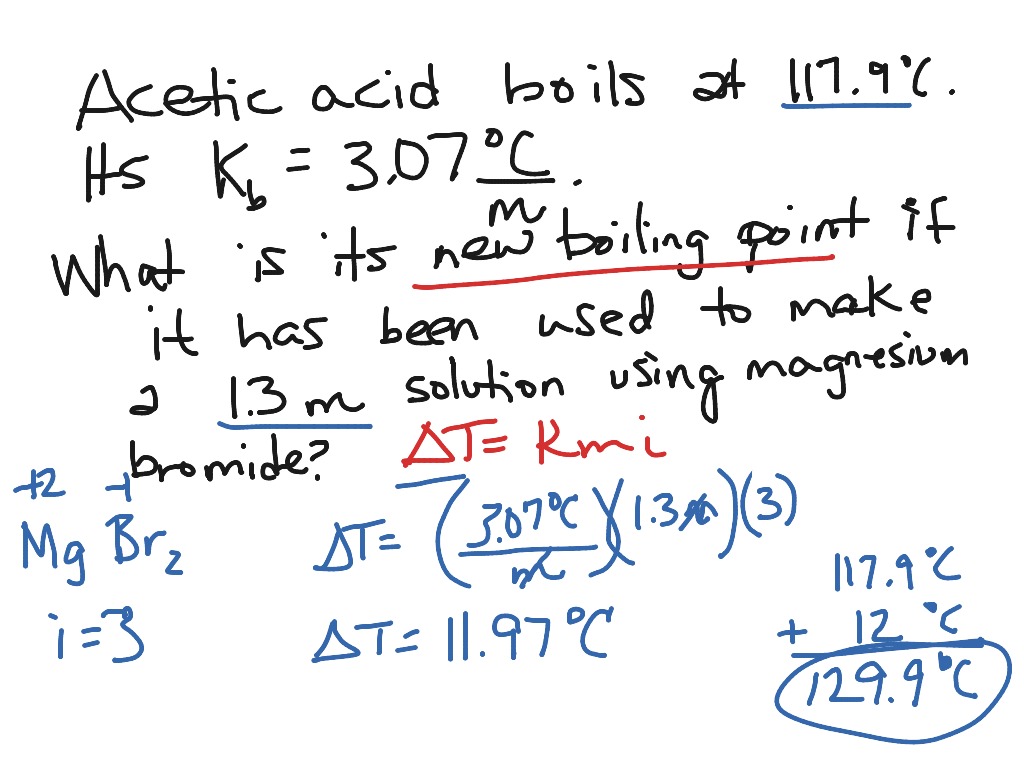 Acetic acid boils at 117.9°C.
Its K_b = 3.07 °C/m.
What is its new boiling point if
it has been used to make
a 1.3 m solution using magnesium
bromide?
ΔT = Kmi
+2 -1
MgBr₂
i = 3
ΔT = (3.07°C/m)(1.3m)(3)
ΔT = 11.97°C
117.9°C
+ 12 °C
129.9°C